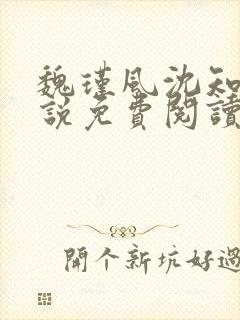 魏瑾風沈知
說免費閱讀
開个新坑好過